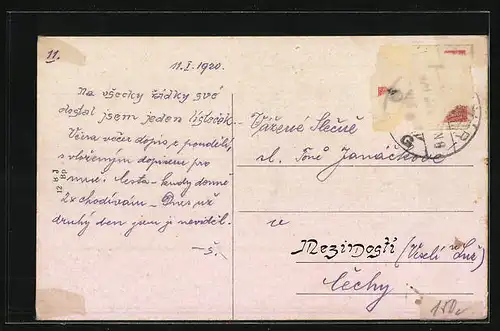 11.
11.I.1920.
Na všecky řádky své
dostal jsem jeden lísteček.
Včera večer dopis z pondělí,
s vloženým dopisem pro
mne. cesta – kudy domů
2x chodívám – Dnes už
druhý den jsem ji neviděl.
–š.
Vážené Slečně
sl. Toně Janáčkové
v
Mezimostí (Veselí n. Luž.)
Čechy
150